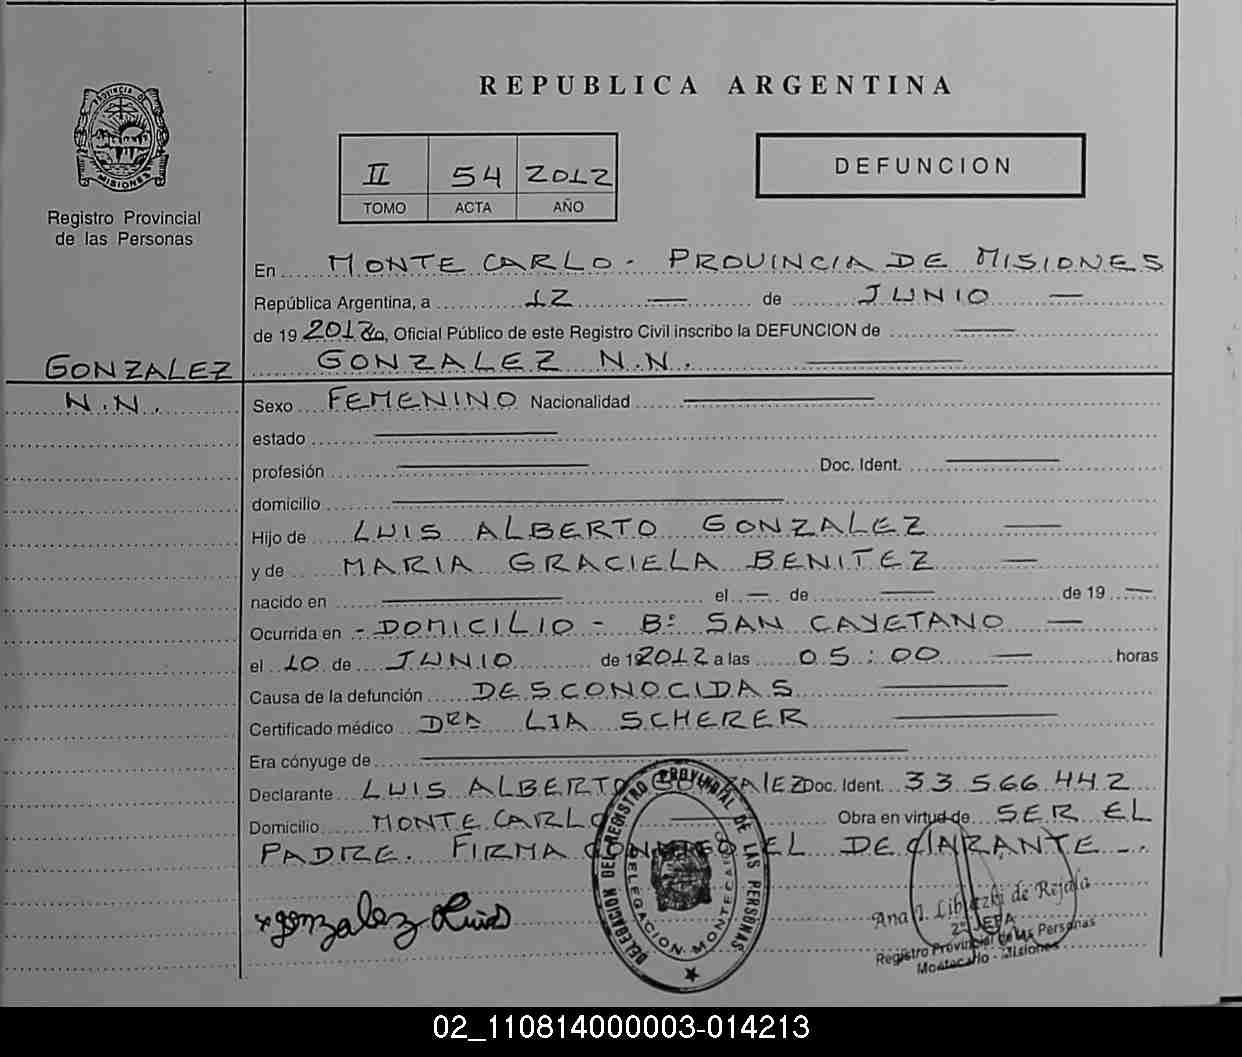 REPUBLICA ARGENTINA
PROVINCIA DE
MISIONES
Registro Provincial
de las Personas
II 54 2012
TOMO ACTA AÑO
DEFUNCION
En MONTE CARLO - PROVINCIA DE MISIONES
República Argentina, a 12 — de JUNIO —
de 19 2012 Yo, Oficial Público de este Registro Civil inscribo la DEFUNCION de —
GONZALEZ N.N. —
GONZALEZ
N.N.
Sexo FEMENINO Nacionalidad —
estado —
profesión — Doc. Ident. —
domicilio —
Hijo de LUIS ALBERTO GONZALEZ —
y de MARIA GRACIELA BENITEZ —
nacido en — el — de — de 19 —
Ocurrida en - DOMICILIO - Bº SAN CAYETANO —
el 10 de JUNIO de 12012 a las 05:00 — horas
Causa de la defunción DESCONOCIDAS —
Certificado médico DRA LIA SCHERER —
Era cónyuge de —
Declarante LUIS ALBERTO GONZALEZ Doc. Ident. 33.566.442
Domicilio MONTE CARLO — Obra en virtud de SER EL
PADRE. FIRMA CONMIGO EL DECLARANTE -.
x gonzalez Luis
DELEGACION DEL REGISTRO PROVINCIAL DE LAS PERSONAS
DELEGACION MONTECARLO
Ana I. de Rejala
2º JEFA
Registro Provincial de las Personas
Montecarlo - Misiones
02_110814000003-014213